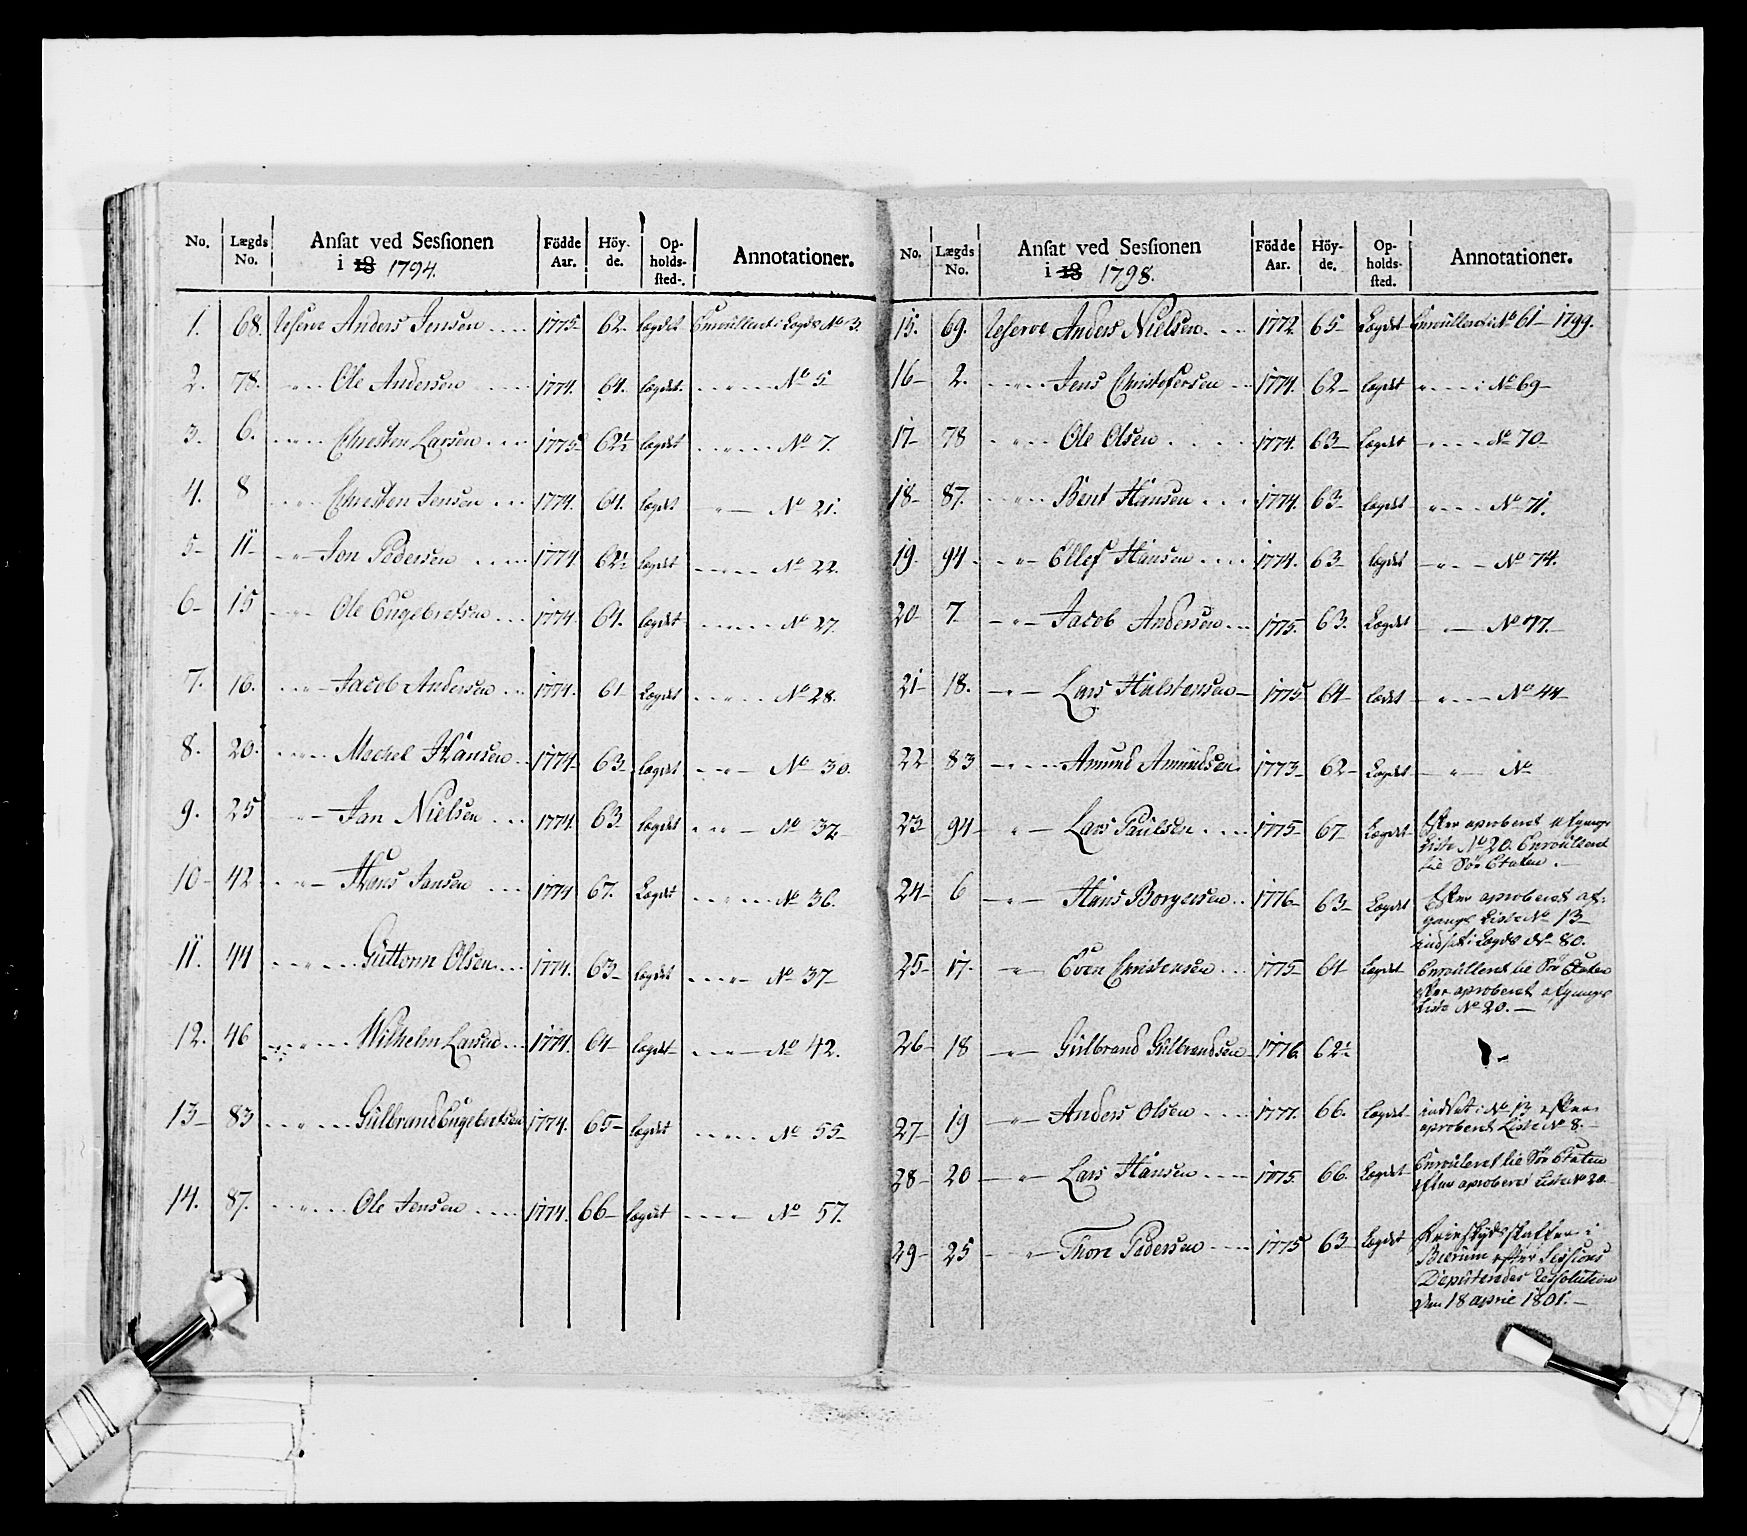 No. Lægds No. Ansat ved Sessionen i 18 1794. Födde Aar. Höyde. Opholds-sted. Annotationer.
1. 68. Reserve Anders Jensen 1775 62. lægdet Enroulleret i Lægds No 3.
2. 78. " Ole Andersen 1774. 64. lægdet " No 5
3. 6. " Chresten Larsen 1775 62½ lægdet " No 7.
4. 8 " Chresten Jensen 1774. 64. lægdet " No 21.
5 11 " Jon Pedersen 1774 62½ lægdet " No 22.
6 15 " Ole Engebretsen 1774. 64. lægdet " No 27.
7. 16. " Jacob Andersen 1774. 61 Lægdet " No 28.
8. 20. " Mechel Hansen 1774 63 lægdet " No 30.
9. 25 " Jan Nielsen 1774. 63 lægdet " No 32
10 42 " Hans Jansen 1774 67. Lægdet " No 36.
11. 44 " Guttorm Olsen 1774. 63 lægdet " No 37
12. 46 " Wilhelm Larsen 1774. 64 lægdet " No 42.
13 83 " Gulbrand Engebretsen 1774. 65 lægdet " No 55
14. 87. " Ole Jensen 1774. 66 lægdet " No 57.
No. Lægds No. Ansat ved Sessionen i 18 1798. Födde Aar. Höyde. Opholds-sted. Annotationer.
15. 69. Reserve Anders Nielsen 1772 65 Lægdet Enroulleret i No 61 1799.
16 2. " Jens Christofersen 1774. 62 lægdet " i No 69
17 78 " Ole Olsen 1774. 63 lægdet " No 70
18 87. " Bent Hansen 1774. 63 lægdet " No 71.
19. 94 " Ellef Hansen 1774. 63 lægdet " No 74.
20 7. " Jacob Andersen 1775. 63. Lægdet " No 77.
21 18. " Lars Halstensen 1775 64 lædet " No 44
22 83 " Amund Amundsen 1773 62 Lægdet " No
23 94 " Lars Paulsen 1775 67 Lægdet Efter aproberet afgangs
Liste No 20. Enroulleret
til Sön Etaten.
24 6 " Hans Borgersen 1776 63 Lægdet Efter aproberet af-
gangs Liste No 13
indsat i Lægds No 80.
25 17. " Even Christensen 1775 64 Lægdet Enroulleret til Sön Etaten
efter aproberet afgangs
Liste No 20.
26 18 " Gulbrand Gulbrandsen 1776. 62½
27 19 " Anders Olsen 1777. 66. Lægdet indsat i No 12 efter
aproberet Liste No 8.
28 20 " Lars Hansen 1775. 66. Lægdet Enrouleret til Sön Etaten
efter aproberet Liste No 20.
29 25 " Thore Pedersen 1775 63 Lægdet
Bærum efter Sessions
Deputeredes Resolution
den 18 april 1801.